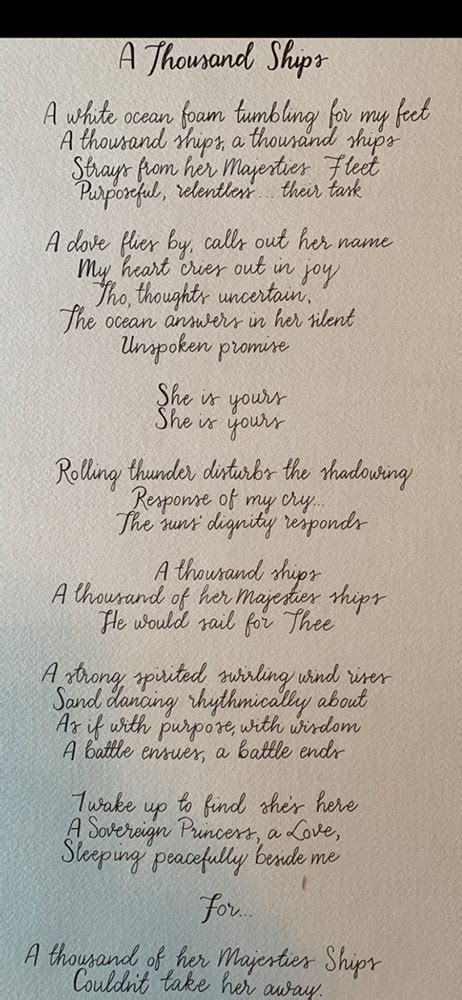 A Thousand Ships
A white ocean foam tumbling for my feet
A thousand ships, a thousand ships
Strays from her Majesties Fleet
Purposeful, relentless... their task
A dove flies by, calls out her name
My heart cries out in joy
Tho, thoughts uncertain,
The ocean answers in her silent
Unspoken promise
She is yours
She is yours
Rolling thunder disturbs the shadowing
Response of my cry...
The suns' dignity responds
A thousand ships
A thousand of her Majesties ships
He would sail for Thee
A strong spirited swirling wind rises
Sand dancing rhythmically about
As if with purpose, with wisdom
A battle ensues, a battle ends
I wake up to find she's here
A Sovereign Princess, a Love,
Sleeping peacefully beside me
For...
A thousand of her Majesties Ships
Couldn't take her away.